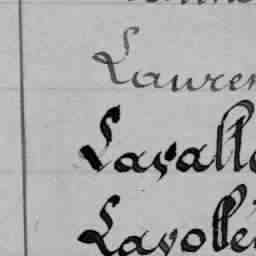 Lauren
Lavall
Lavollé